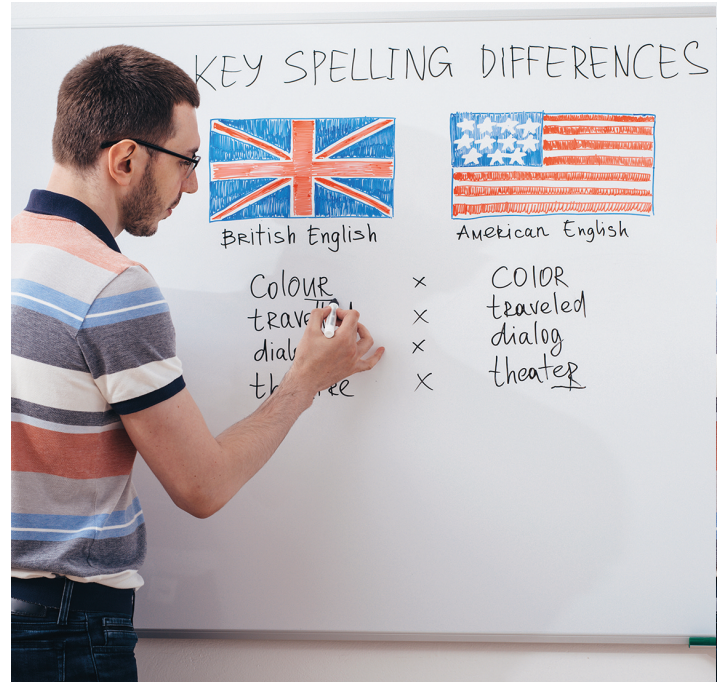 KEY SPELLING DIFFERENCES
British English American English
Colour × COLOR
× traveled
× dialog
× theater